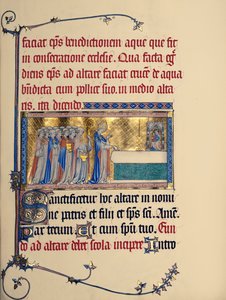 faciat ep̄s benedictionem aque que fit
in consecratione ecclesie. Qua facta ip̄e
diens ep̄s ad altare faciat crucē de aqua
bn̄dicta cum pollice suo. in medio alta
ris. ita dicendo.
Sanctificetur hoc altare in nomi
ne patris et filij et sp̄s sc̄i. Amē.
Par tecum. Et cum sp̄u tuo. Eun
do ad altare debet scola incipere. Intro